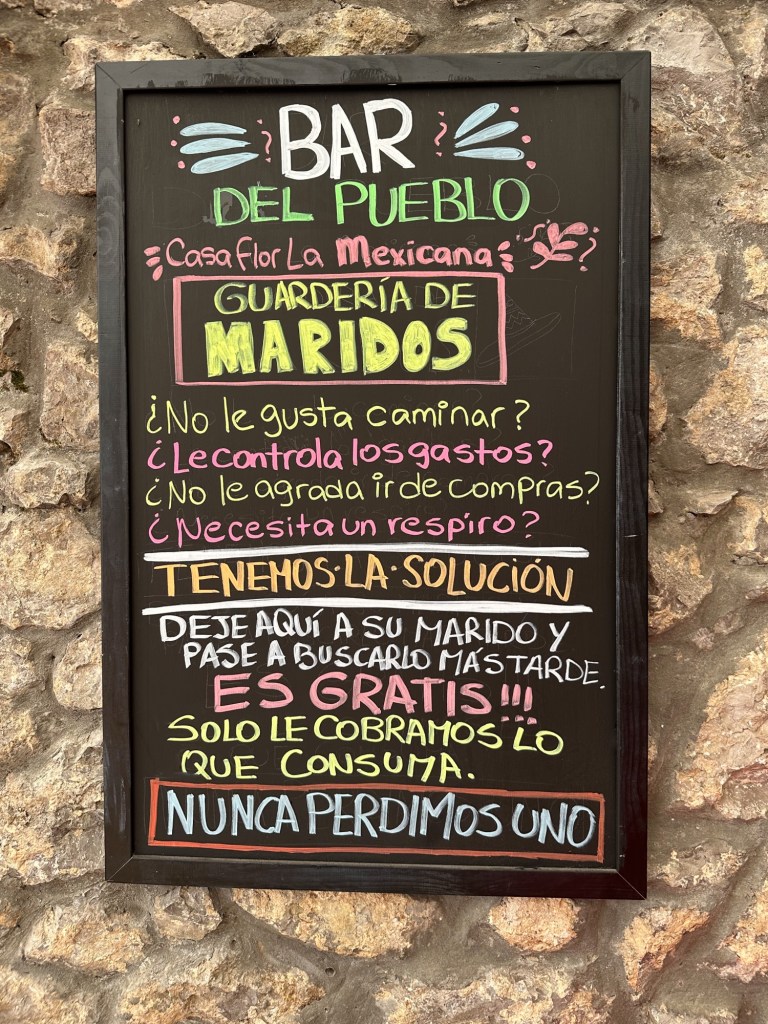 BAR
DEL PUEBLO
Casa Flor La Mexicana
GUARDERÍA DE
MARIDOS
¿No le gusta caminar?
¿Le controla los gastos?
¿No le agrada ir de compras?
¿Necesita un respiro?
TENEMOS·LA·SOLUCIÓN
DEJE AQUÍ A SU MARIDO Y
PASE A BUSCARLO MÁS TARDE.
ES GRATIS!!!
SOLO LE COBRAMOS LO
QUE CONSUMA.
NUNCA PERDIMOS UNO